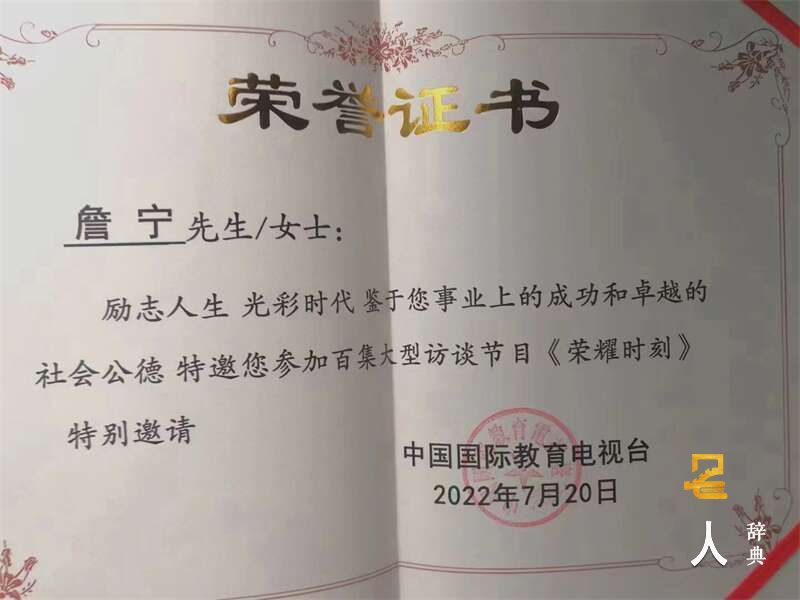 荣誉证书
詹宁先生/女士：
励志人生 光彩时代 鉴于您事业上的成功和卓越的
社会公德 特邀您参加百集大型访谈节目《荣耀时刻》
特别邀请
中国国际教育电视台
2022年7月20日
人
辞典